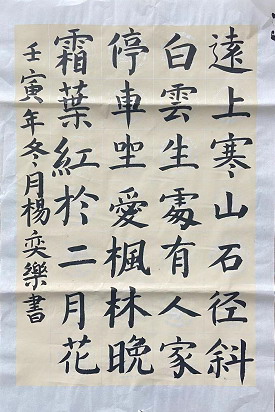 遠上寒山石径斜
白雲生處有人家
停車坐愛楓林晚
霜葉紅於二月花
壬寅年冬月楊奕樂書